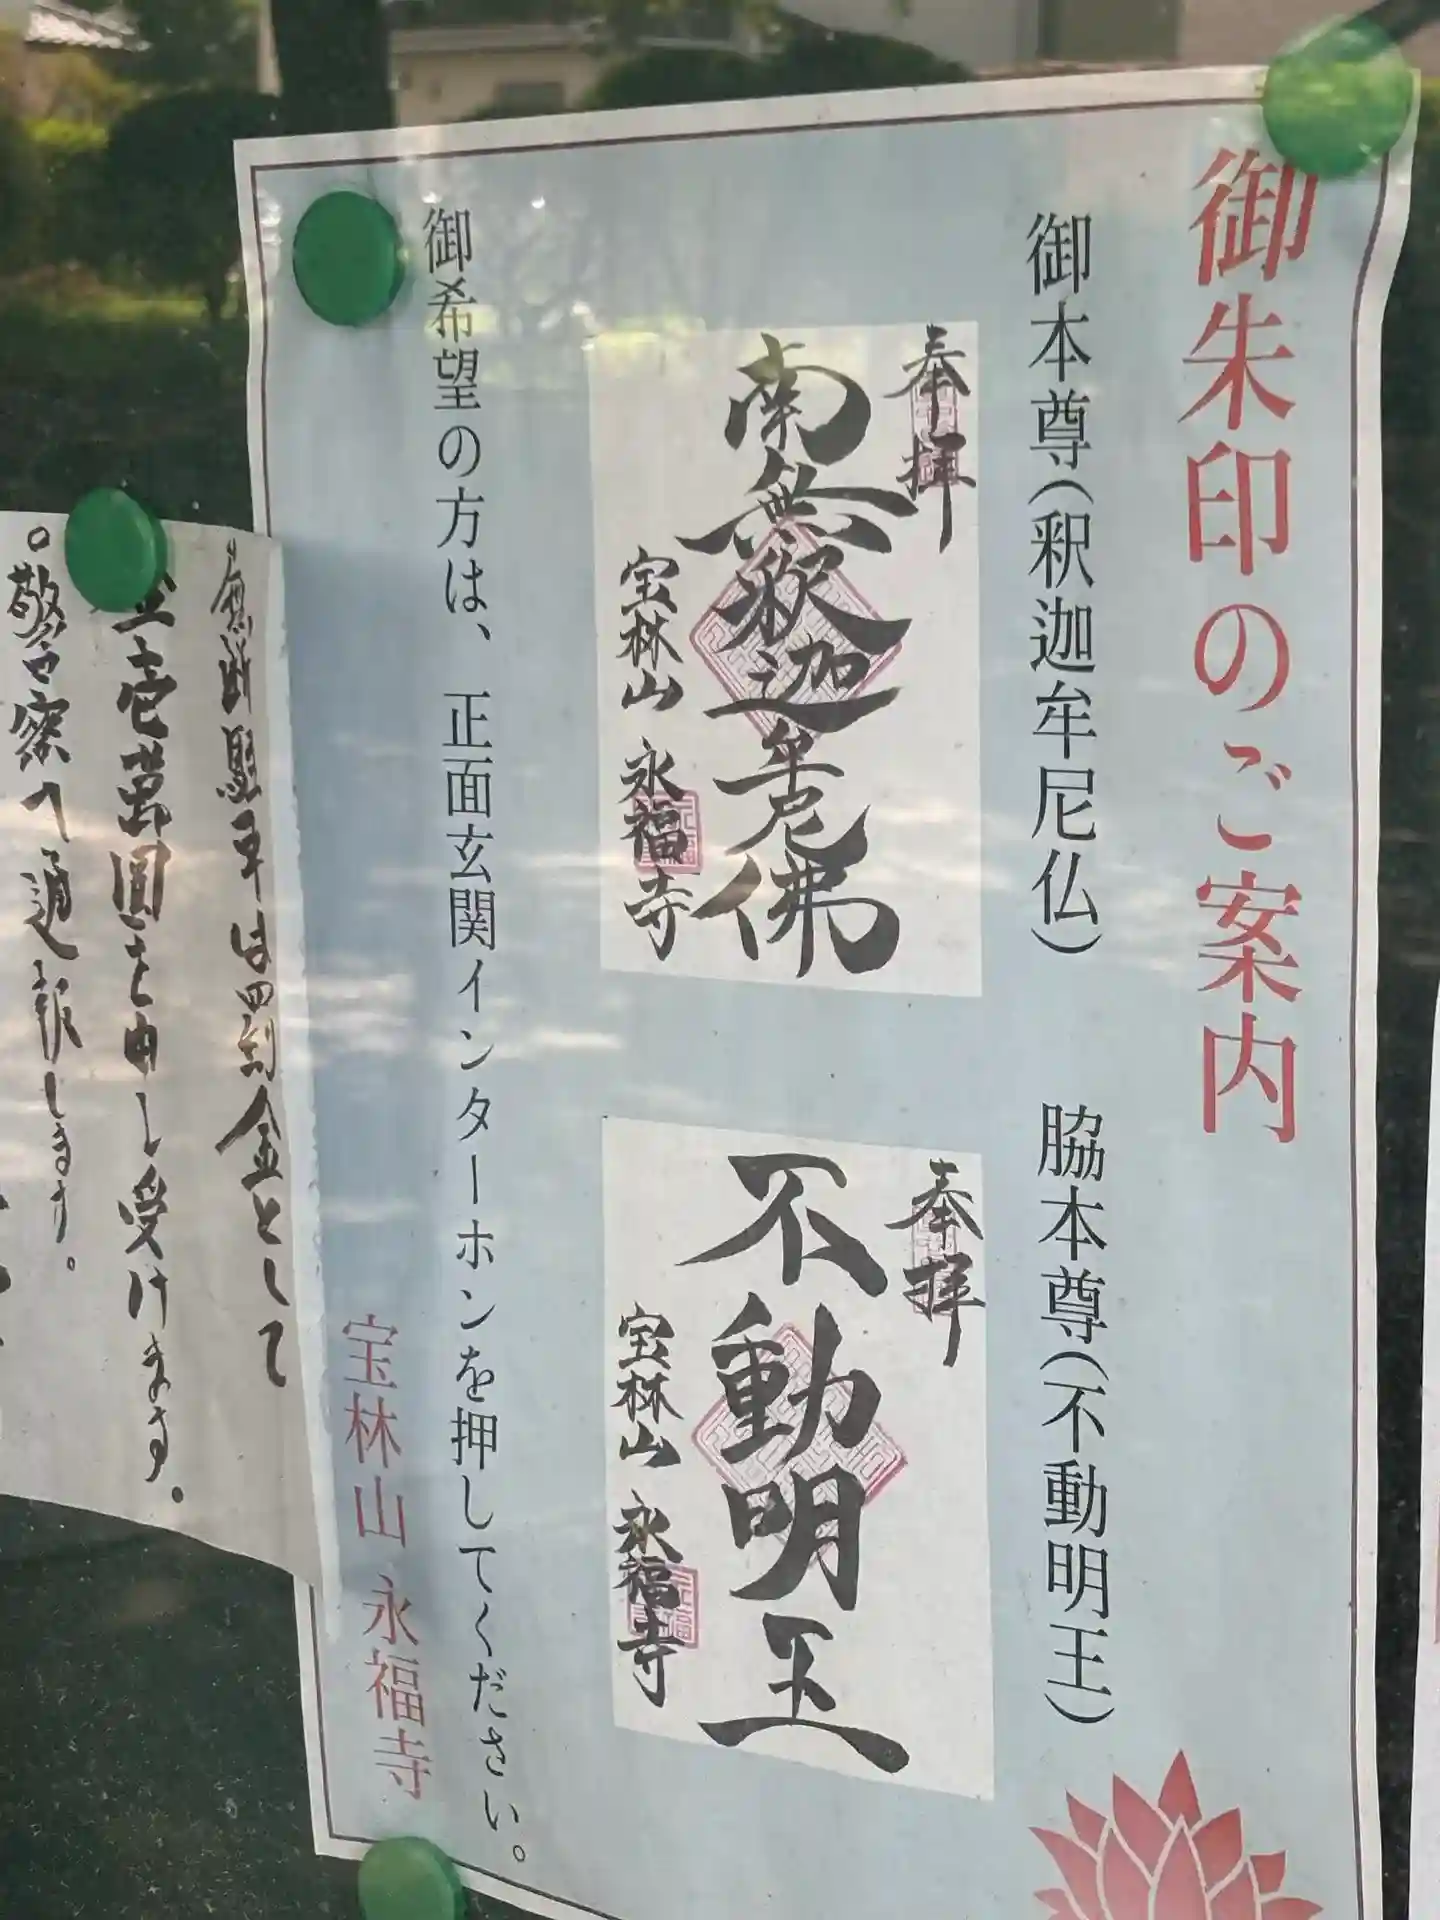 御朱印のご案内
御本尊(釈迦牟尼仏)
脇本尊(不動明王)
奉拝
南無釈迦牟尼佛
宝林山 永福寺
奉拝
不動明王
宝林山 永福寺
御希望の方は、正面玄関インターホンを押してください。
宝林山 永福寺
無断駐車は罰金として
金壱萬圓を申し受けます。
。警察へ通報します。